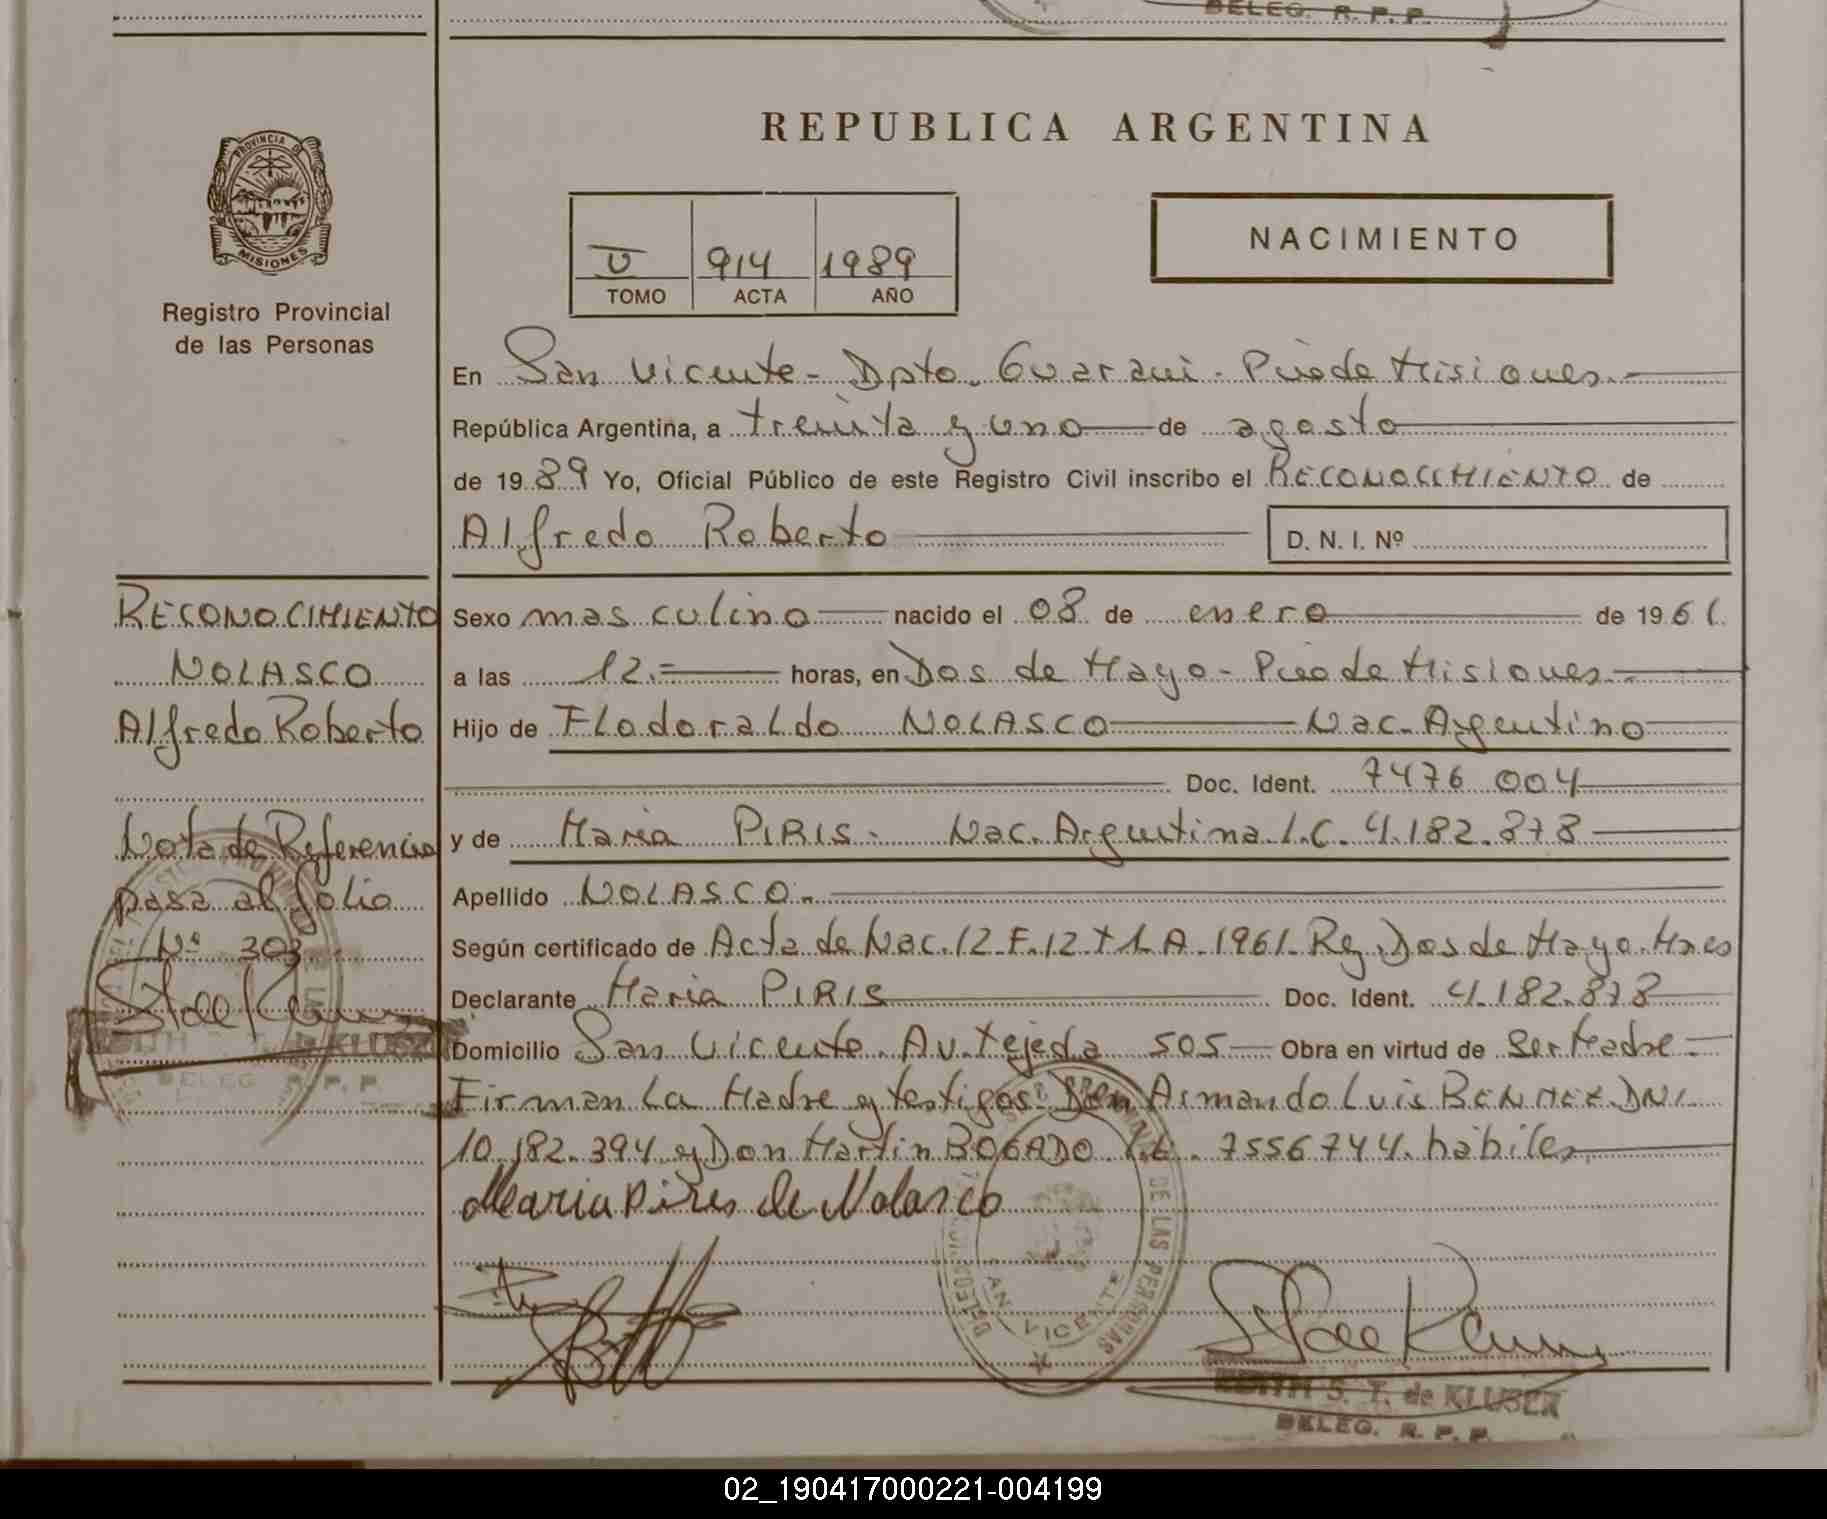 BELEG. R. P. P.
REPUBLICA ARGENTINA
PROVINCIA DE
MISIONES
Registro Provincial
de las Personas
V 914 1989
TOMO ACTA AÑO
NACIMIENTO
En San Vicente - Dpto. Guarani - Pcia de Misiones.-
República Argentina, a treinta y uno de agosto
de 1989 Yo, Oficial Público de este Registro Civil inscribo el RECONOCIMIENTO de
Alfredo Roberto D. N. I. Nº
RECONOCIMIENTO
NOLASCO
Alfredo Roberto
Nota de Referencia
pasa al folio
Nº 303
Sexo masculino nacido el 08 de enero de 1961.
a las 12.= horas, en Dos de Mayo - Pcia de Misiones.-
Hijo de Flodoraldo NOLASCO Nac. Argentino
Doc. Ident. 7476 004
y de Maria PIRIS. Nac. Argentina. L.C. 4.182.878
Apellido NOLASCO.
Según certificado de Acta de Nac. 12 F. 12 T 1. A. 1961. Reg. Dos de Mayo. Mnes
Declarante Maria PIRIS Doc. Ident. 4.182.878
Domicilio San Vicente. Av. Tejeda 505 Obra en virtud de Ser Madre -
Firman La Madre y testigos: Don Armando Luis BENITEZ. DNI.
10.182.394 y Don Martin BOGADO. L.E. 7556744. habiles
Maria Piris de Nolasco
DE LAS PERSONAS
SAN VICENTE
EDITH S. T. de KLUSER
BELEG. R. P. P.
02_190417000221-004199